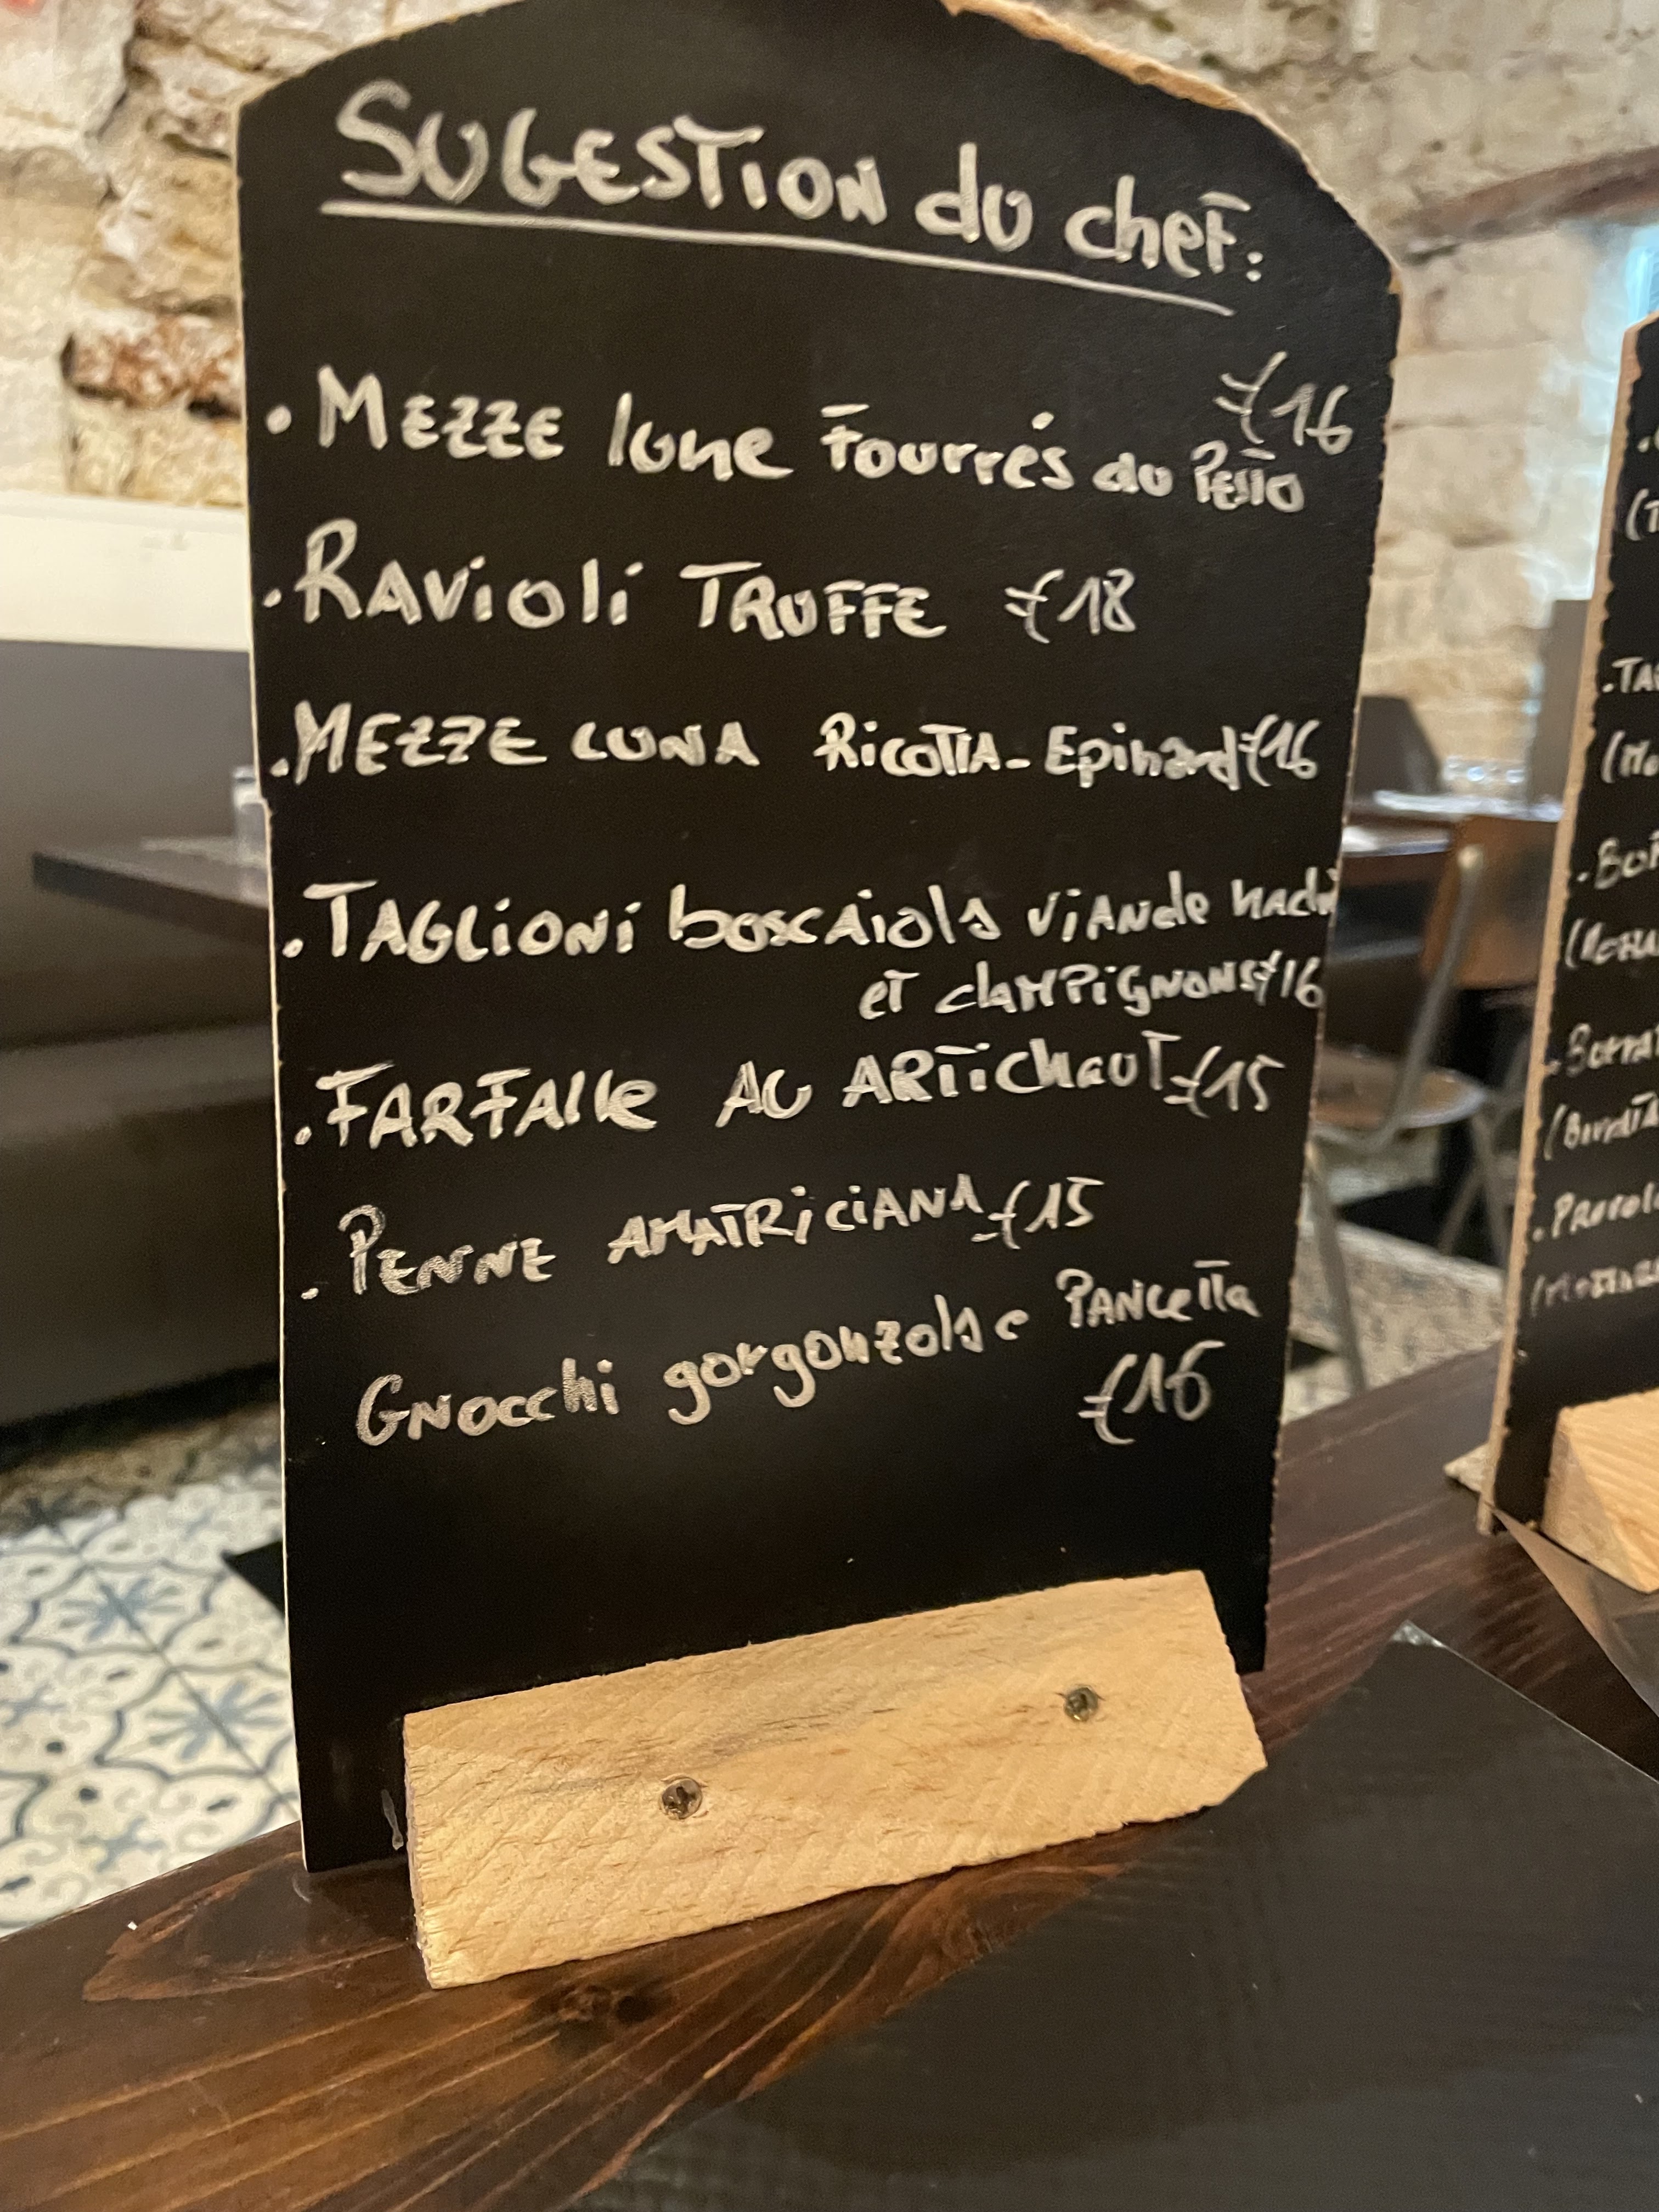 SUGESTION du chef:
• MEZZE lune fourrés au Pesto €16
• RAVioli TRUFFE €18
• MEZZE LUNA RicOTTA-Epinard €16
• TAGLiONi boscAiolA ViANde hachè
et chAMPiGNONS €16
• FARFAlle AU ARTichauT €15
• PENNE AMATRiCiANA €15
GNocchi gorgonzolA e PANceTTa
€16